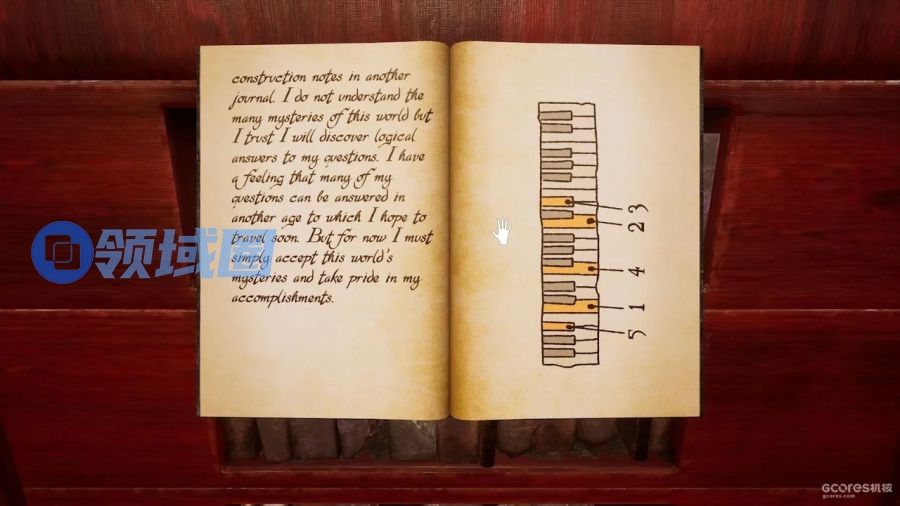 construction notes in another
journal. I do not understand the
many mysteries of this world but
I trust I will discover logical
answers to my questions. I have
a feeling that many of my
questions can be answered in
another age to which I hope to
travel soon. But for now I must
simply accept this world's
mysteries and take pride in my
accomplishments.
3
2
4
1
5
领域圈
GCORES机核
gcores.com